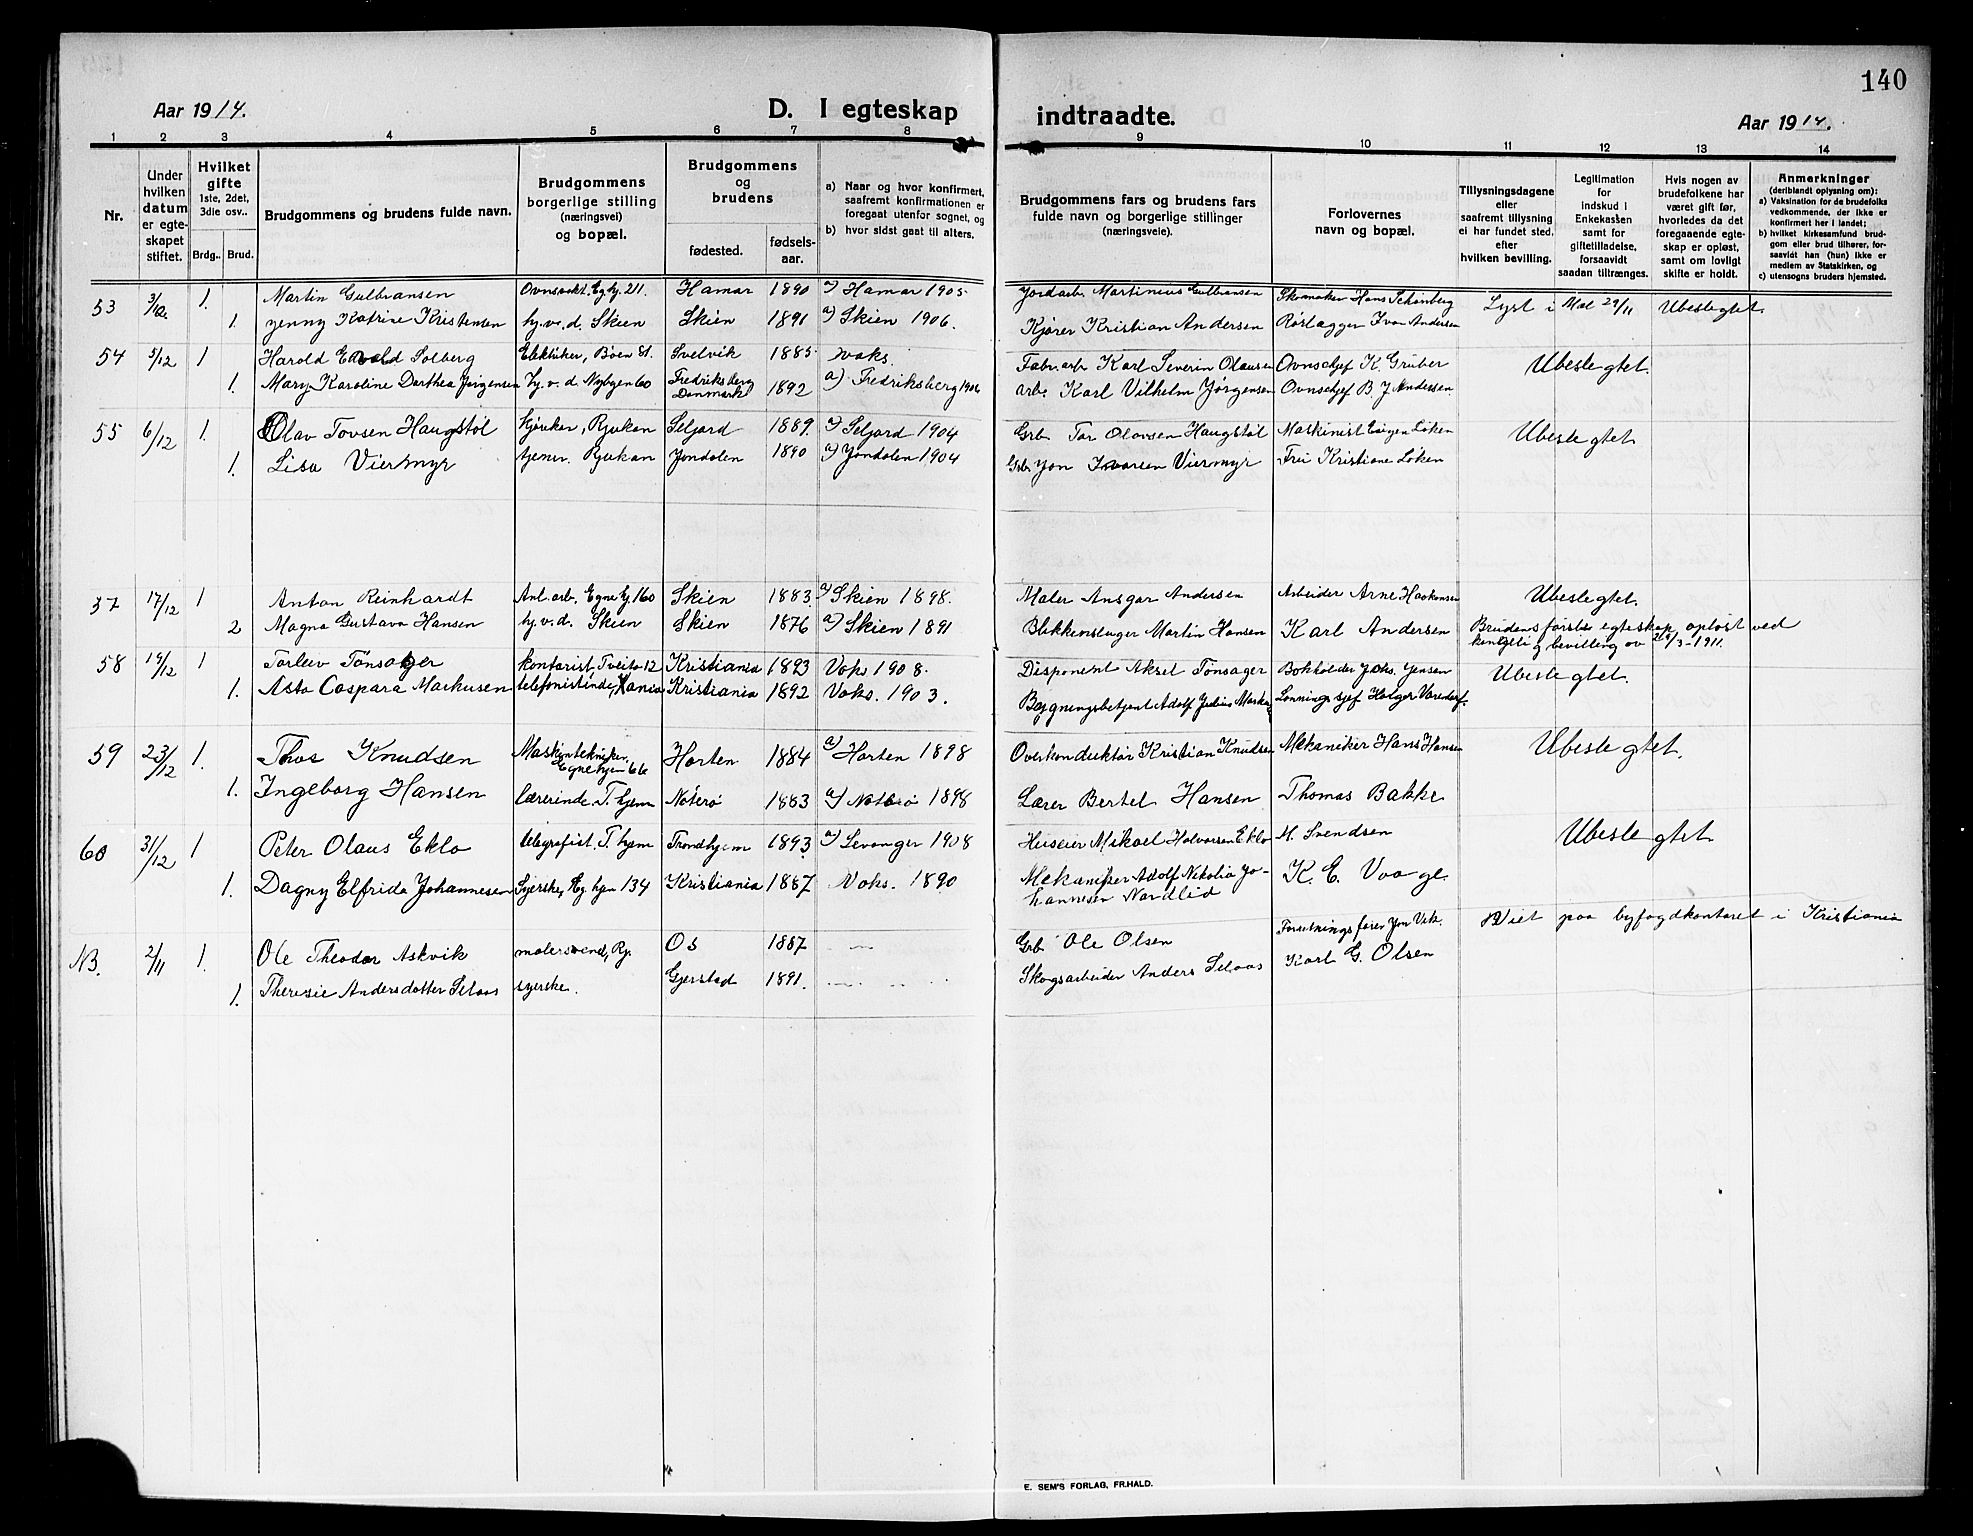 140
Aar 1914.
D. I egteskap indtraadte.
Aar 1914.
1 2 3 4 5 6 7 8 9 10 11 12 13 14
Nr.
Under hvilken datum er egteskapet stiftet.
Hvilket gifte 1ste, 2det, 3die osv..
Brdg.. Brud.
Brudgommens og brudens fulde navn.
Brudgommens borgerlige stilling (næringsvei) og bopæl.
Brudgommens og brudens
fødested. fødsels-aar.
a) Naar og hvor konfirmert, saafremt konfirmationen er foregaat utenfor sognet, og
b) hvor sidst gaat til alters.
Brudgommens fars og brudens fars fulde navn og borgerlige stillinger (næringsveie).
Forlovernes navn og bopæl.
Tillysningsdagene eller saafremt tillysning ei har fundet sted, efter hvilken bevilling.
Legitimation for indskud i Enkekassen samt for giftetilladelse, forsaavidt saadan tiltrænges.
Hvis nogen av brudefolkene har været gift før, hvorledes da det foregaaende egteskap er opløst, samt om lovligt skifte er holdt.
Anmerkninger (deriblandt oplysning om):
a) Vaksination for de brudefolks vedkommende, der ikke er konfirmert her i landet;
b) hvilket kirkesamfund brudgom eller brud tilhører, forsaavidt han (hun) ikke er medlem av Statskirken, og
c) utensogns bruders hjemsted.
53 3/12 1. Martin Gulbransen Ovnsarbt. Eg.hj. 211. Hamar 1890 a) Hamar 1905 Jordarb. Martinius Gulbransen Skomaker Hans Schønberg Lyst i Mæl 29/11 Ubeslegtet
1. Jenny Katrine Kristensen hj.v.d. Skien Skien 1891 a) Skien 1906. Kjører Kristian Andersen Rørlægger Ivar Andersen
54 5/12 1 Harald Evald Solberg Elektriker, Bøen st. Svelvik 1885 voks. Fabr.arb. Karl Severin Olausen Ovnschef K. Gruber Ubeslegtet.
1. Mary Karoline Dorthea Jørgensen hj.v.d. Nybyen 60 Fredriksberg Danmark 1892 a) Fredriksberg 1906 arb. Karl Vilhelm Jørgensen Ovnschef B. J. Andersen
55 6/12 1. Olav Tovsen Haugstøl hjøuker, Rjukan Seljord 1889. a) Seljord 1904 Grb. Tor Olavsen Haugstøl Maskinist Løken Ubeslegtet
1. Lisa Viermyr tjener. Rjukan Jondalen 1890 a) Jondalen 1904 Grb. Jon Ivarsen Viermyr Fru Kristiane Løken
37 17/12 1 Anton Reinhardt Anl.arb. Egne hj. 160 Skien 1883. a) Skien 1898. Maler Ansgar Andersen Arbeider Arne Haakonsen Ubeslegtet.
2 Magna Gustava Hansen hj.v.d. Skien Skien 1876 a) Skien 1891 Blikkenslager Martin Hansen Karl Andersen Brudens første egteskap opløst ved kongelig bevilling av 28/3-1911.
58 19/12 1 Torleiv Tønsager kontorist. Tveito 12 Kristiania 1893 Voks 1908. Disponent Aksel Tønsager Bokholder Johs. Jensen Ubeslegtet.
1. Asta Caspara Markusen telefonistinde, Kania Kristiania 1892 Voks. 1903. Bygningsbetjent Adolf Julius Markusen Lønningssjef Holger Varendorf.
59 23/12 1. Thos Knudsen Maskintekniker, Egnehjem 66 Horten 1884 a) Horten 1898 Overkonduktør Kristian Knudsen Mekaniker Hans Hansen Ubeslegtet.
1. Ingeborg Hansen lærerinde. T. hjem Nøterø 1883 a) Nøterø 1898 Lærer Bertel Hansen Thomas Bakke
60 31/12 1 Peter Olaus Eklo telegrafist. T. hjem Trondhjem 1893 a) Levanger 1908 Huseier Mikael Halvorsen Eklo M. Svendsen Ubeslegtet
1. Dagny Elfrida Johannesen Syerske, Eg. hjm 134 Kristiania 1887 Voks. 1890 Mekaniker Adolf Nikolia Johannesen Nordlid K. E. Vaage
NB. 2/11 1. Ole Theodor Askvik malersvend, Rj. Os 1887 — Grb. Ole Olsen Forretningsfører Jon Vik Viet paa byfogdkontoret i Kristiania
1. Theresie Andersdatter Selaas syerske. Gjerstad 1891. — Skogsarbeider Anders Selaas Karl G. Olsen
E. SEM'S FORLAG, FR.HALD.